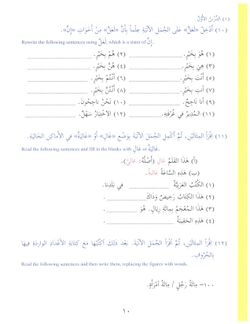 (١٠) أَدْخِلْ «لَعَلَّ» عَلَى الْجُمَلِ الآتِيَةِ عِلْمًا بِأَنَّ «لَعَلَّ» مِنْ أَخَوَاتِ «إِنَّ».
Rewrite the following sentences using لَعَلَّ, which is a sister of إِنَّ.
(١) هُوَ بِخَيْرٍ. (٢) هُمْ بِخَيْرٍ.
(٣) هِيَ بِخَيْرٍ. (٤) هُنَّ بِخَيْرٍ.
(٥) أَنْتَ بِخَيْرٍ. (٦) أَنْتُمْ بِخَيْرٍ.
(٧) أَنْتِ بِخَيْرٍ. (٨) أَنْتُنَّ بِخَيْرٍ.
(٩) أَنَا نَاجِحٌ. (١٠) نَحْنُ نَاجِحُونَ.
(١١) الْمُدِيرُ فِي غُرْفَتِهِ. (١٢) الاخْتِبَارُ سَهْلٌ.
(١١) اِقْرَأِ الْمِثَالَيْنِ، ثُمَّ أَكْمِلِ الْجُمَلَ الآتِيَةَ بِوَضْعِ «غَالٍ» أَوْ «غَالِيَةٌ» فِي الأَمَاكِنِ الْخَالِيَةِ.
Read the following sentences and fill in the blanks with غَالٍ or غَالِيَةٌ.
(أ) هَذَا الْقَلَمُ غَالٍ
(ب) هَذِهِ السَّاعَةُ غَالِيَةٌ.
(١) الْكُتُبُ الْعَرَبِيَّةُ فِي بَلَدِنَا.
(٢) هَذَا الْكِتَابُ رَخِيصٌ وَذَاكَ
(٣) هَذَا الْمُعْجَمُ بِمِائَةِ رِيَالٍ. هُوَ
(٤) هَذِهِ الْحَقِيبَةُ
(١٢) اِقْرَأِ الْمِثَالَيْنِ، ثُمَّ اقْرَأِ الْجُمَلَ الآتِيَةَ. بَعْدَ ذَلِكَ اكْتُبْهَا مَعَ كِتَابَةِ الأَعْدَادِ الْوَارِدَةِ فِيهَا
بِالْحُرُوفِ.
Read the following sentences and then write them, replacing the figures with words.
١٠٠- مِائَةُ رَجُلٍ / مِائَةُ امْرَأَةٍ.
١٠